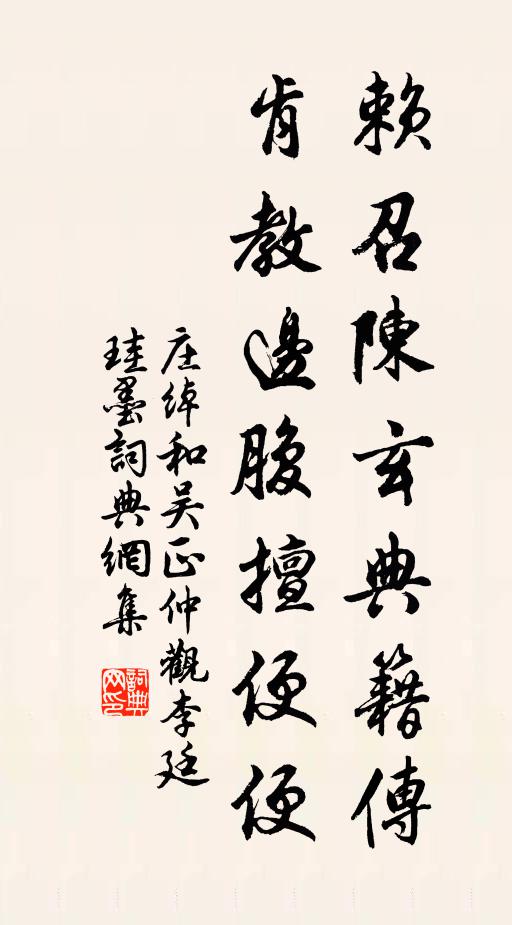 賴召陳玄典籍傳
肯教邊腹擅便便
庄綽和吴正仲觀李廷
珪墨詞典網集
詞典网印